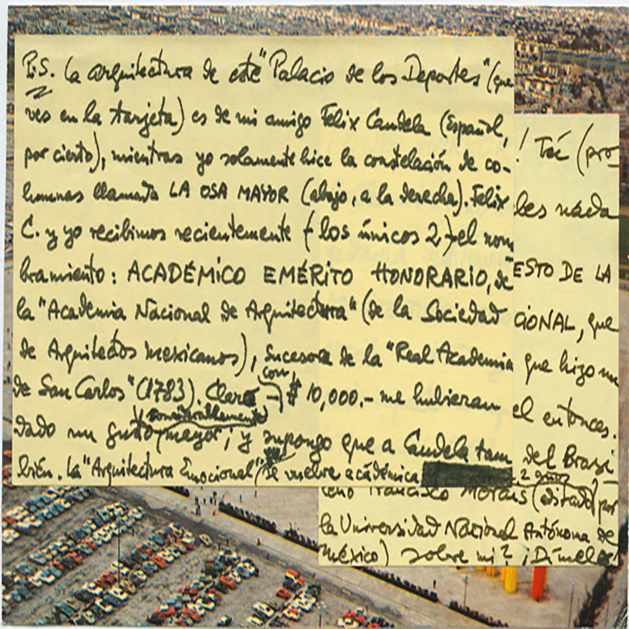 P.S. La arquitectura de este "Palacio de los Deportes" (que
ves en la tarjeta) es de mi amigo Felix Candela (Español,
por cierto), mientras yo solamente hice la constelación de co-
lumnas llamada LA OSA MAYOR (abajo, a la derecha). Felix
C. y yo recibimos recientemente (los únicos 2) el nom
bramiento: ACADÉMICO EMÉRITO HONORARIO, de
la "Academia Nacional de Arquitectura" (de la Sociedad
de Arquitectos Mexicanos), sucesora de la "Real Academia
de San Carlos" (1783). Claro con
$ 10,000.- me hubieran
considerablemente
dado un gusto mayor, y supongo que a Candela tam
bién. La "Arquitectura Emocional" se vuelve académica
! Toé (pro
les nada
ESTO DE LA
CIONAL, que
que hizo
el entonces.
del Brasi
2 años
Francisco Morais (editado por
la Universidad Nacional Autónoma de
México) sobre mi? ¡Dímelo!